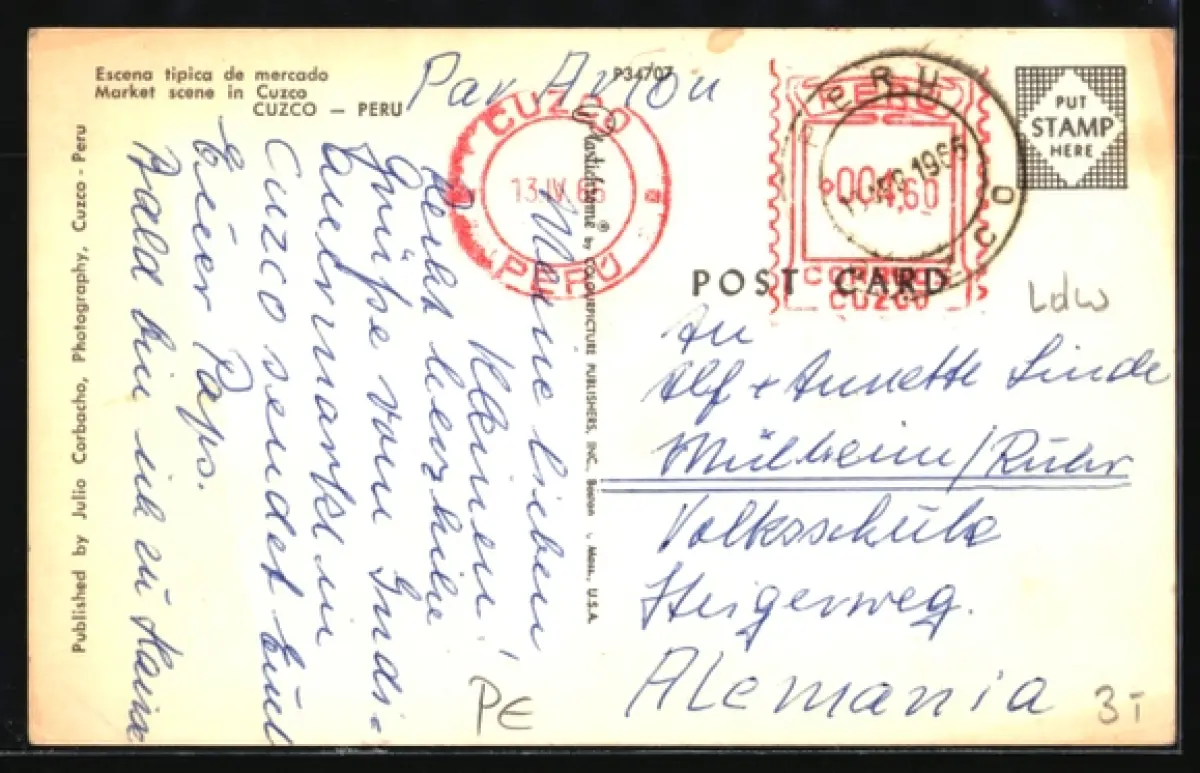 Escena tipica de mercado
Market scene in Cuzco
CUZCO — PERU
P34707
Par Avion
CUZCO
13.IV.66
PERÚ
PERU
004,60
CORREOS
CUZCO
PERU
1965
CO
PUT
STAMP
HERE
POST CARD
Ldw
Published by Julio Corbacho, Photography, Cuzco - Peru
Plastichrome ® by COLOURPICTURE PUBLISHERS, INC., Boston, Mass., U.S.A.
Meine lieben
Kleinen!
Recht herzliche
Grüße vom Indi-
anermarkt in
Cuzco sendet Euch
Euer Paps.
Bald bin ich zu Hause
An
Alf + Annette Linde
Mülheim/Ruhr
Volksschule
Steigerweg.
Alemania
PE
3 T